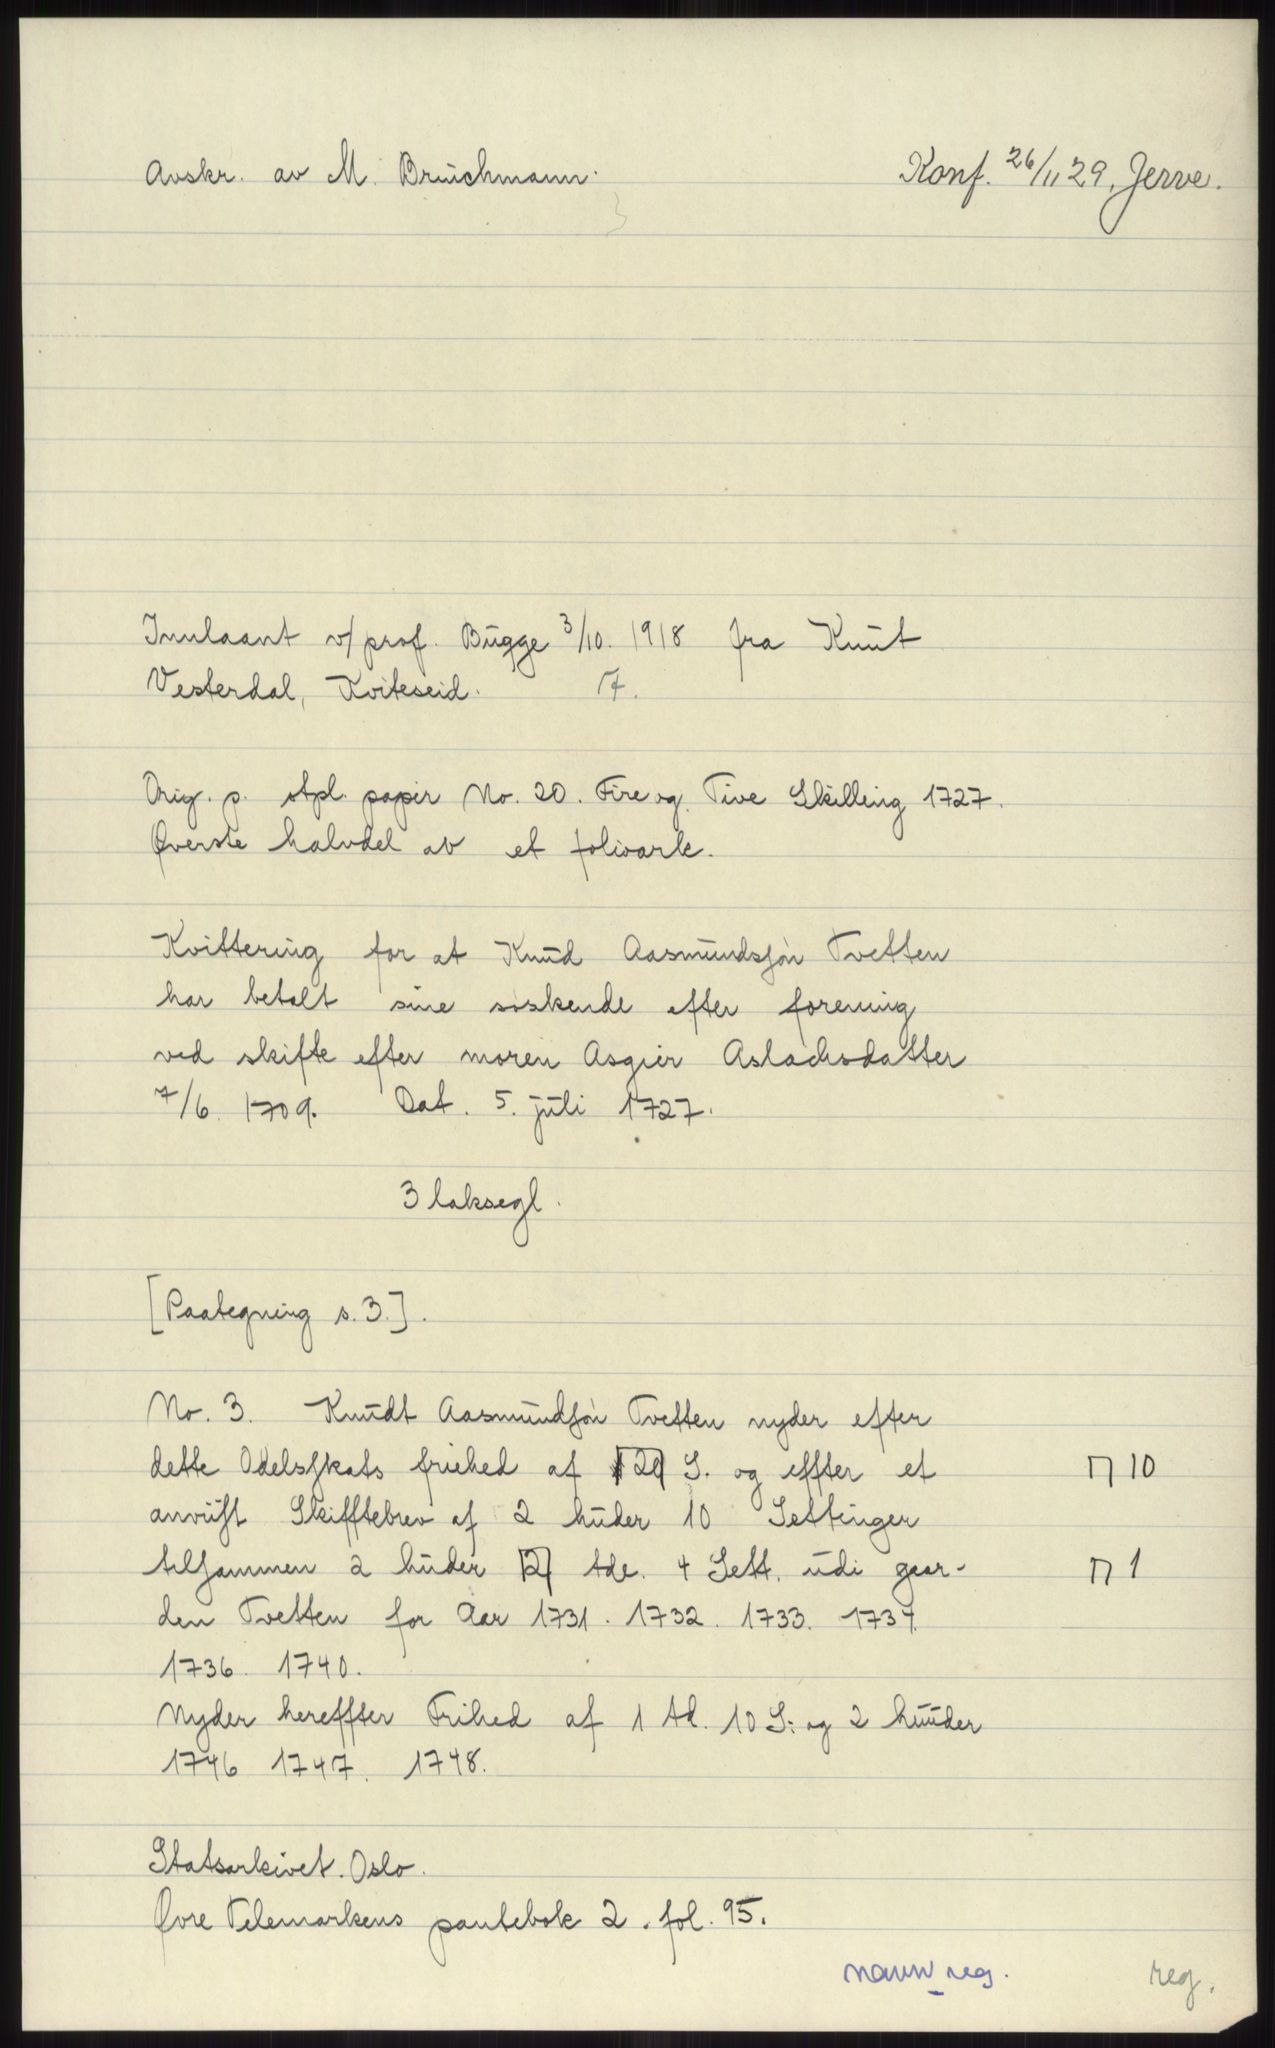 Avskr. av M. Bruchmann.
Konf. 26/11 29. Jerve.
Innlaant v/prof. Bugge 3/10. 1918 fra Knut
Vesterdal, Kviteseid. 17.
Orig. p. stpl. papir No. 20. Fire og Tive Skilling 1727.
Øverste halvdel av et folioark.
Kvittering for at Knud Aasmundsøn Tvetten
har betalt sine søskende efter forening
ved skifte efter moren Asgier Aslachsdatter
7/6 1709. Dat. 5. juli 1727.
3 laksegl.
[Paategning s. 3.].
No. 3. Knudt Aasmundsøn Tvetten nyder efter
dette Odelsskats friehed af 20 S. og effter et ⊓ 10
anvist Skifftebrev af 2 huder 10 Settinger
tilsammen 2 huder 2 tde. 4 Sett. udi gaar- ⊓ 1
den Tvetten for Aar 1731. 1732. 1733. 1734.
1736. 1740.
Nyder hereffter Frihed af 1 td. 10 S: og 2 huuder
1746 1747. 1748.
Statsarkivet. Oslo.
Øvre Telemarkens pantebok 2. fol. 95.
navn reg.
reg.